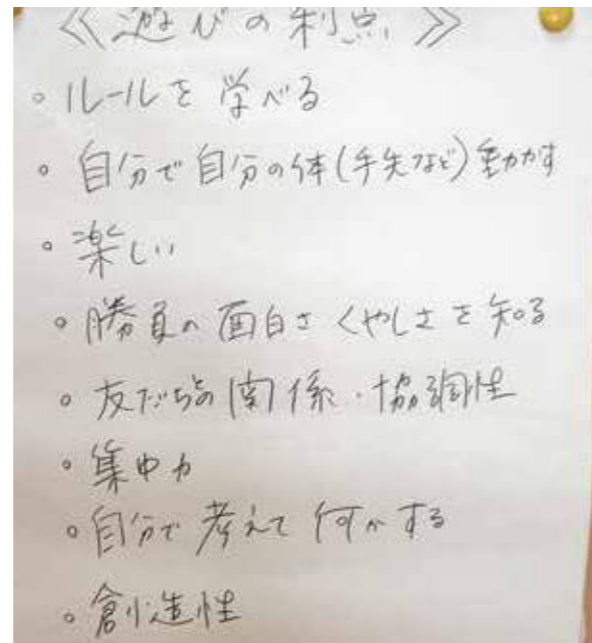 ≪遊びの利点≫
。ルールを学べる
。自分で自分の体(手先など)動かす
。楽しい
。勝負の面白さくやしさを知る
。友だちとの関係・協調性
。集中力
。自分で考えて何かする
。創造性